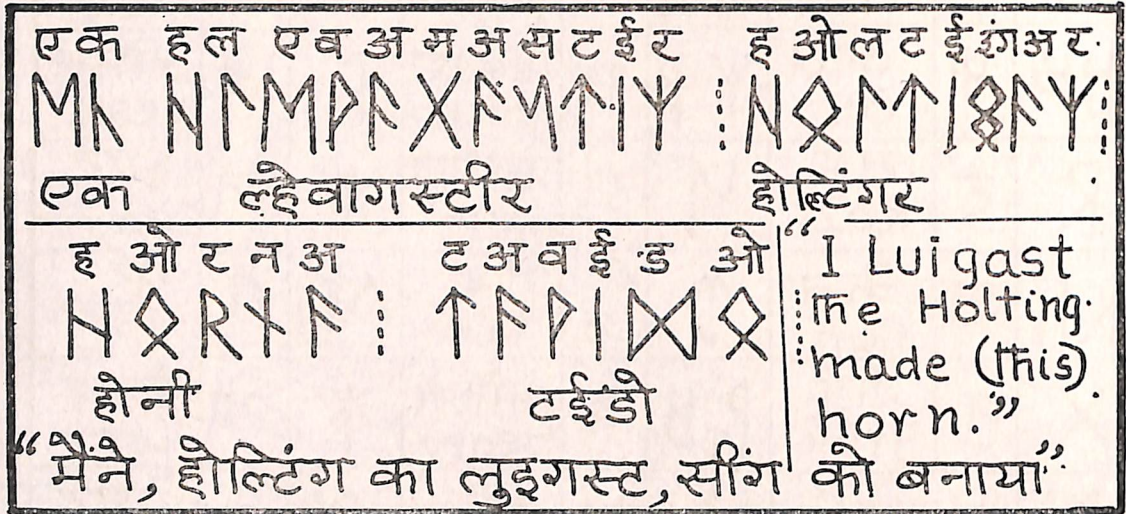 एक हल एव अ म अ स ट ई र ह ओ ल ट ई इंग अ र
ᛖᚲ ᚺᛚᛖᚹᚨᚷᚨᛊᛏᛁᛉ ⁝ ᚺᛟᛚᛏᛁᛜᚨᛉ ⁝
एक ल्हेवागस्टीर होल्टिंगर
ह ओ र न अ ट अ व ई ड ओ
ᚺᛟᚱᚾᚨ ⁝ ᛏᚨᚹᛁᛞᛟ ⁝
होनी टईडो
“I Luigast
the Holting
made (this)
horn.”
“मैंने, होल्टिंग का लुइगस्ट, सींग को बनाया”